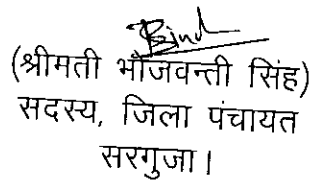 (श्रीमती भौजवन्ती सिंह)
सदस्य, जिला पंचायत
सरगुजा।